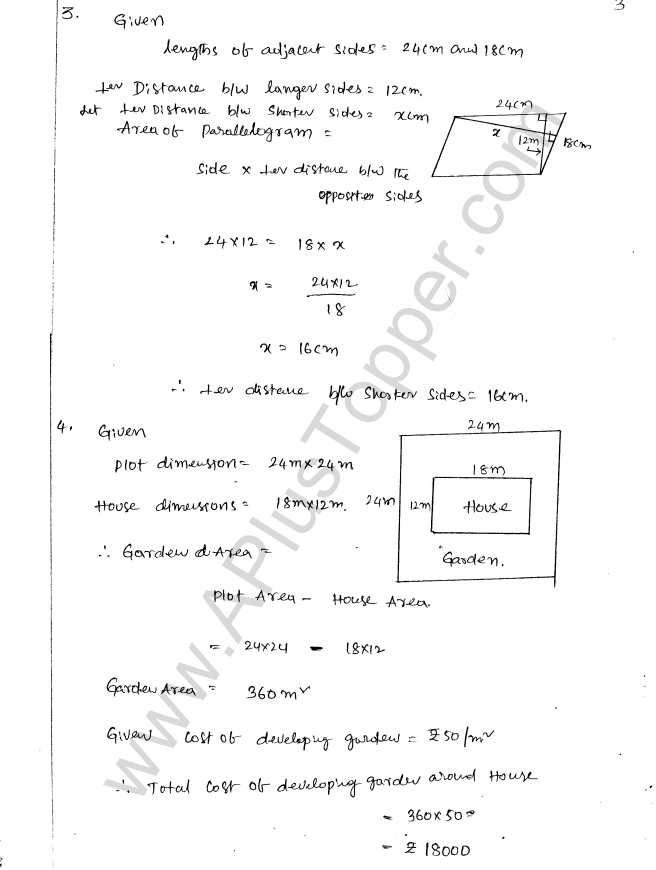 3
3. Given
lengths of adjacent sides = 24cm and 18cm
⊥er Distance b/w longer sides = 12cm.
Let ⊥er Distance b/w Shorter sides = xcm
Area of Parallelogram =
24cm
x
12m
18cm
Side × ⊥er distane b/w the
opposites sides
∴ 24×12 = 18×x
x = 24×12
18
x = 16cm
∴ ⊥er distane b/w Shorter sides = 16cm.
4. Given
Plot dimension = 24m×24m
House dimensions = 18m×12m.
24m
18m
24m
12m
House
Garden.
∴ Garden d Area =
Plot Area – House Area.
= 24×24 – 18×12
Garden Area = 360m²
Given Cost of developing garden = ₹50/m²
∴ Total Cost of developing garden around House
= 360×50
= ₹ 18000
www.APlusTopper.com